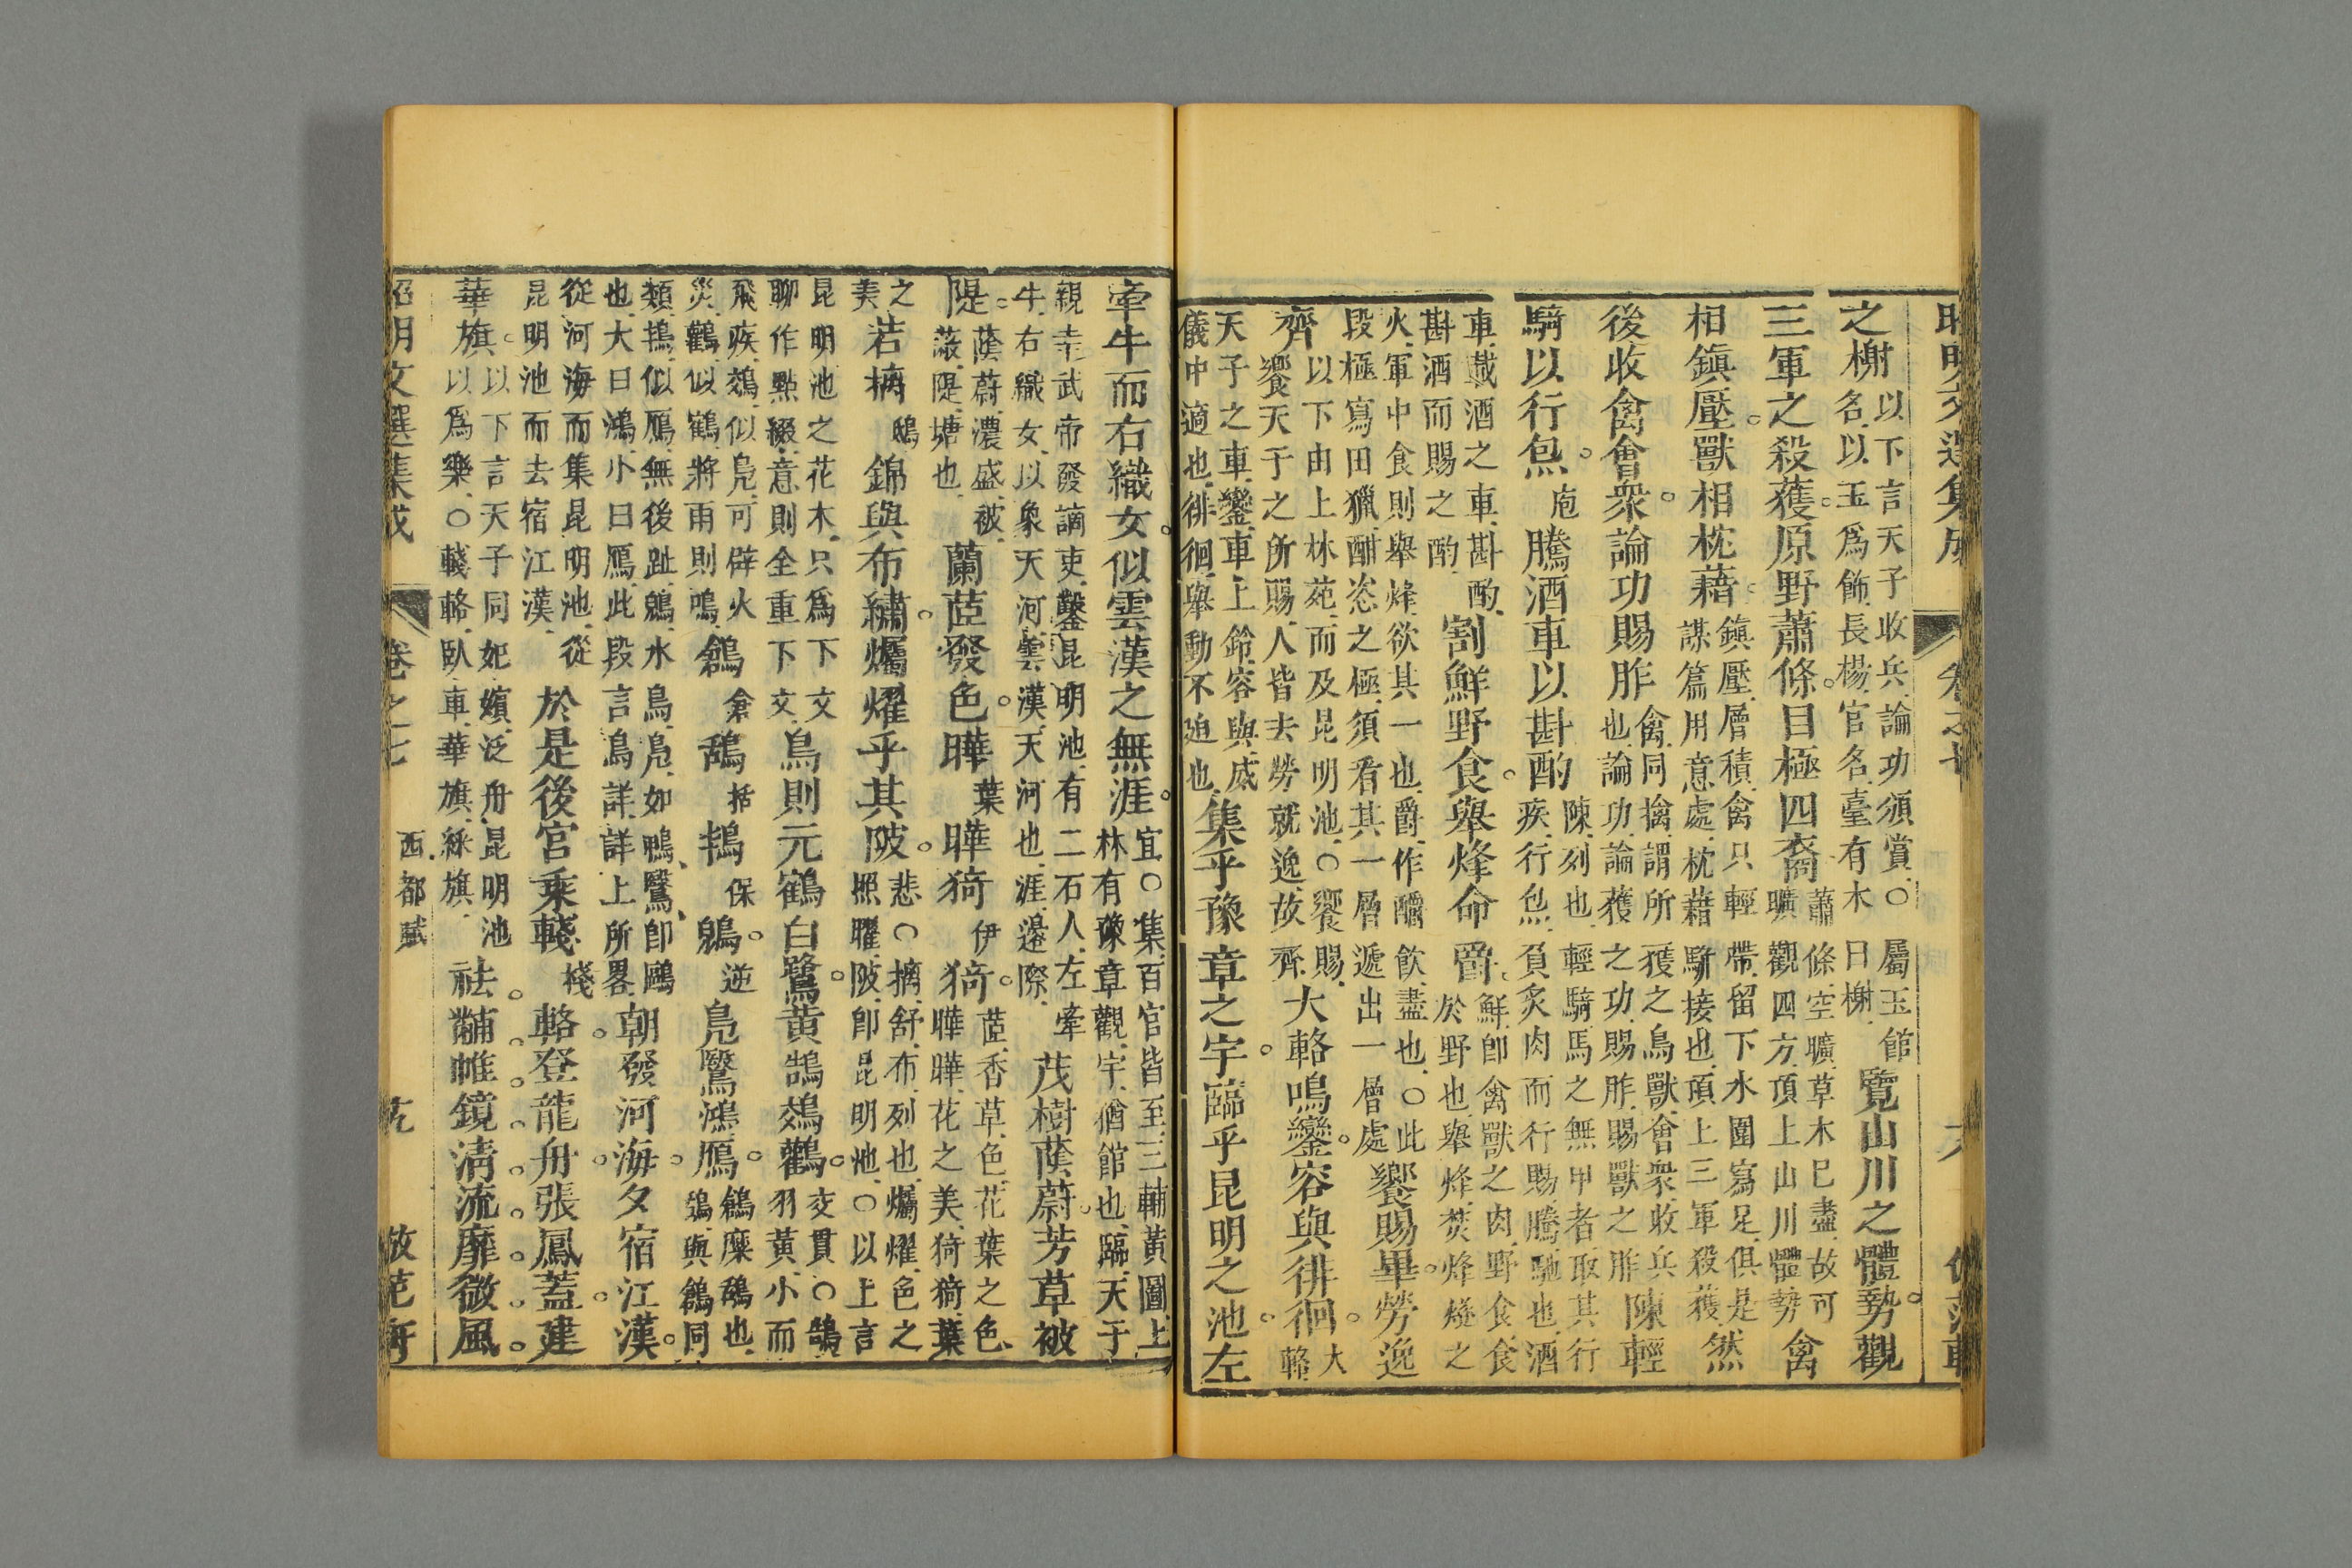 之榭以下言天子收兵論功頒賞○屬玉館名以玉爲飾長楊宮名臺有木曰榭覽山川之體勢觀
三軍之殺獲原野蕭條目極四裔蕭條空曠草木巳盡故可曠觀四方頂上山川體勢禽
相鎮壓獸相枕藉鎮壓層積禽只輕帶留下水圍寫足俱是謀篇用意處枕藉駢接也頂上三軍殺獲然
後收禽會衆論功賜胙禽同擒謂所獲之鳥獸會衆收兵也論功論獲之功賜胙賜獸之胙陳輕
騎以行炰庖騰酒車以斟酌陳列也輕騎馬之無甲者取其行疾行炰負炙肉而行賜騰馳也酒
車載酒之車斟酌斟酒而賜之酌割鮮野食舉烽命爵鮮卽禽獸之肉野食食於野也舉烽焚烽燧之
火軍中食則舉烽欲其一也爵作釂飲盡也○此段極寫田獵酣恣之極須看其一層遞出一層處饗賜畢勞逸
齊以下由上林苑而及昆明池○饗賜饗天子之所賜人皆去勞就逸故齊大輅鳴鑾容與徘徊大輅
天子之車鑾車上鈴容與威儀中適也徘徊舉動不迫也集乎豫章之宇臨乎昆明之池左
牽牛而右織女似雲漢之無涯宜○集百官皆至三輔黃圖上林有豫章觀宇猶館也臨天子
親幸武帝發謫吏鑿昆明池有二石人左牽牛右織女以象天河雲漢天河也涯邊際茂樹蔭蔚芳草被
隄蔭蔚濃盛被蔽隄塘也蘭茝發色曄葉曄猗伊猗茝香草色花葉之色曄曄花之美猗猗葉
之美若摛鴟錦與布繡爥耀乎其陂悲○摛舒布列也爥耀色之照曜陂卽昆明池○以上言
昆明池之花木只爲下文聊作點綴意則全重下文鳥則元鶴白鷺黃鵠鵁鸛交貫○鵠羽黃小而
飛疾鵁似鳧可辟火災鸛似鶴將雨則鳴鶬倉鴰括鴇保鶂逆鳧鷖鴻鴈鶬麋鴰也鴇與鶬同
類鴇似鴈無後趾鶂水鳥鳧如鴨鷖卽鷗也大曰鴻小曰鴈此段言鳥詳詳上所畧朝發河海夕宿江漢
從河海而集昆明池從昆明池而去宿江漢於是後宮乘輚棧輅登龍舟張鳳蓋建
華旗以下言天子同妃嬪泛舟昆明池以爲樂○輚輅臥車華旗綵旗祛黼帷鏡清流靡微風
昭明文選集成 卷之七 西都賦